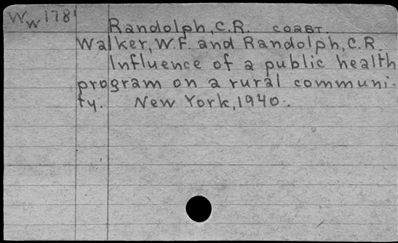 Ww 178
Randolph, C.R. COAUT.
Walker, W.F. and Randolph, C.R.
Influence of a public health
program on a rural communi-
ty. New York, 1940.